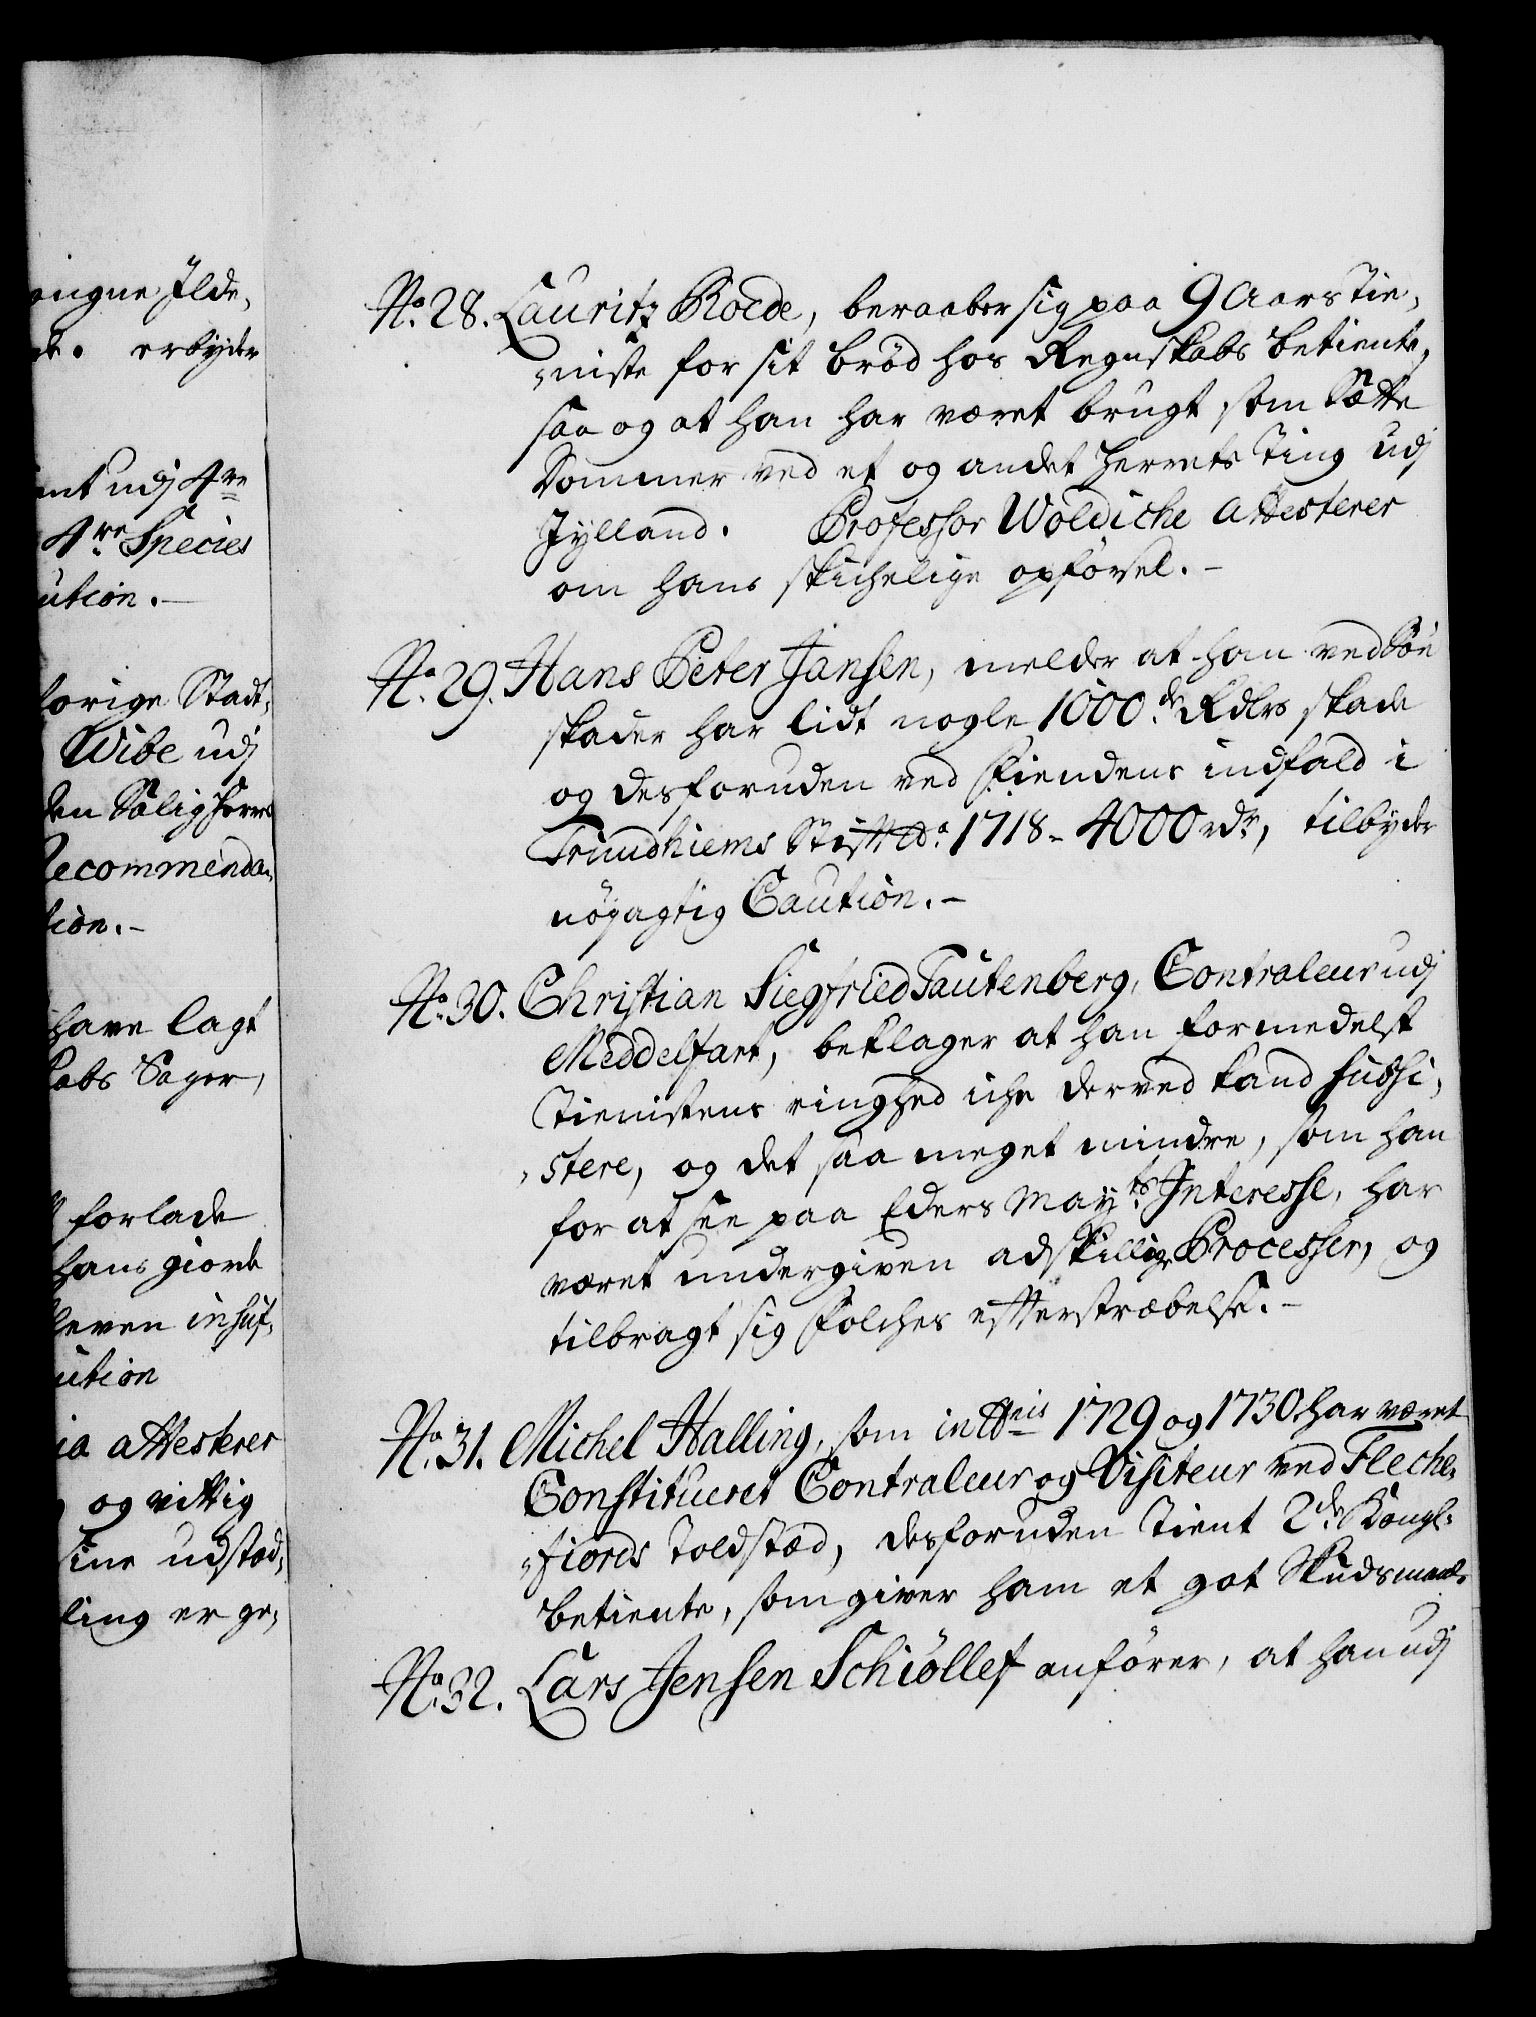 angne Ilde,
de. erbyder
ent udj 4re
4re Species
ution.-
forige Stadt,
Wibe udj
den Salig Herres
Recommenda,
tion.-
have lagt
kabs Sager,
forlade
hans giorde
bleven insuf,
ution
ia attesterer
og rittig
sine udstæd,
ling er ge,
No. 28. Lauritz Roede, beraaber sig paa 9 Aars Tie,
,niste for sit brød hos Regnskabs betiente,
saa og at han har været brugt som Sætte
Dommer ved et og andet Herrets Ting udj
Jylland. Professor Woldiche attesterer
om hans skichelige opførsel.-
No. 29. Hans Peter Jansen, melder at han ved Søe
skader har lidt nogle 1000.de Rdlrs skade
og desforuden ved Fiendens indfald i
Trundhiems Stift Ao. 1718- 4000 rdr, tilbyder
nøyagtig Caution.-
No. 30. Christian Siegfried Tautenberg, Contraleur udj
Meddelfart, beklager at han formedelst
Tienistens ringhed iche derved kand subsi,
,stere, og det saa meget mindre, som han
for at see paa Eders Mayts. Interesse, har
været undergiven adskillige Processer, og
tilbragt sig Folches efterstræbelse.-
No. 31. Michel Halling, som in Anis 1729 og 1730 har været
Constitueret Contraleur og Visiteur ved Fleche,
,fiords Toldstæd, desforuden tient 2de Kongl:
betiente, som giver ham et got Skudsmaal
No. 32. Lars Jensen Schiøllef anfører, at han udj